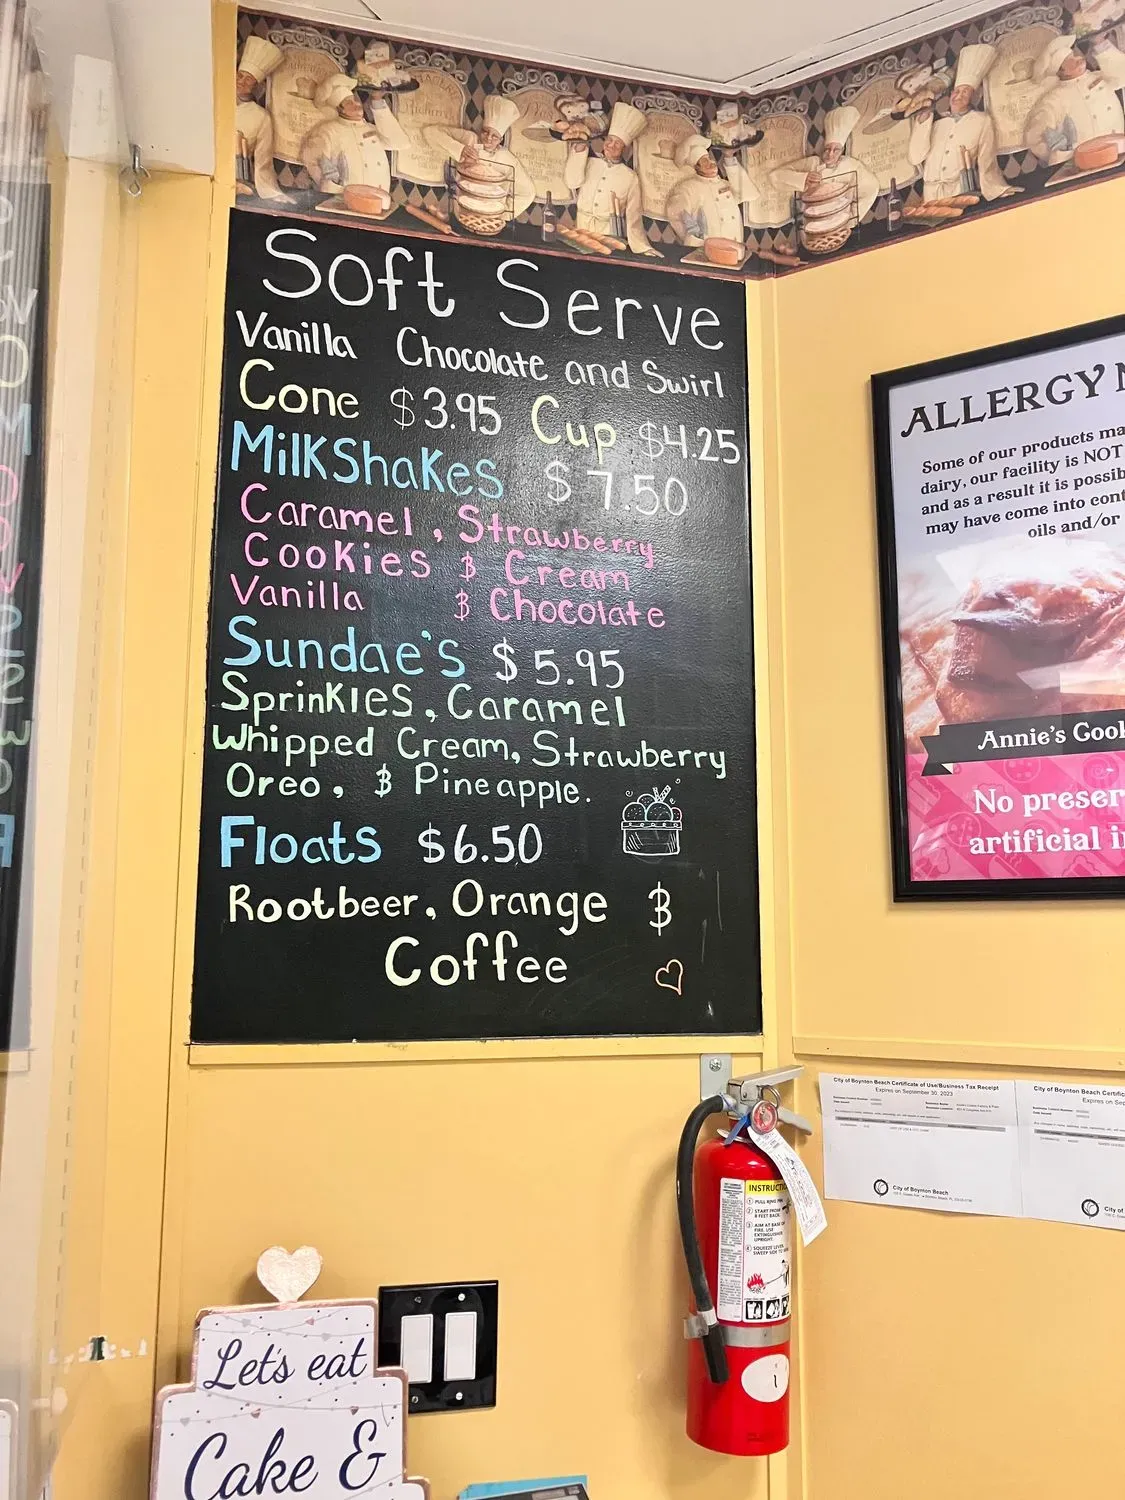 Soft Serve
Vanilla Chocolate and Swirl
Cone $3.95 Cup $4.25
MilKShaKes $7.50
Caramel, Strawberry
CooKies & Cream
Vanilla & Chocolate
Sundae's $5.95
SprinKles, Caramel
Whipped Cream, Strawberry
Oreo, & Pineapple.
Floats $6.50
Rootbeer, Orange &
Coffee
ALLERGY
Some of our products
dairy, our facility is NOT
and as a result it is
may have come into
oils and/or
Annie's
No
artificial
City of Boynton Beach Certificate of Use/Business Tax Receipt
Expires on September 30, 2023
City of Boynton Beach
City of Boynton Beach
Expires on
City of
INSTRUCTIONS
1 PULL RING PIN
2 START FROM
8 FEET BACK.
3 AIM AT BASE OF
FIRE. USE
EXTINGUISHER
UPRIGHT.
4 SQUEEZE LEVER,
SWEEP SIDE TO
Let's eat
Cake &